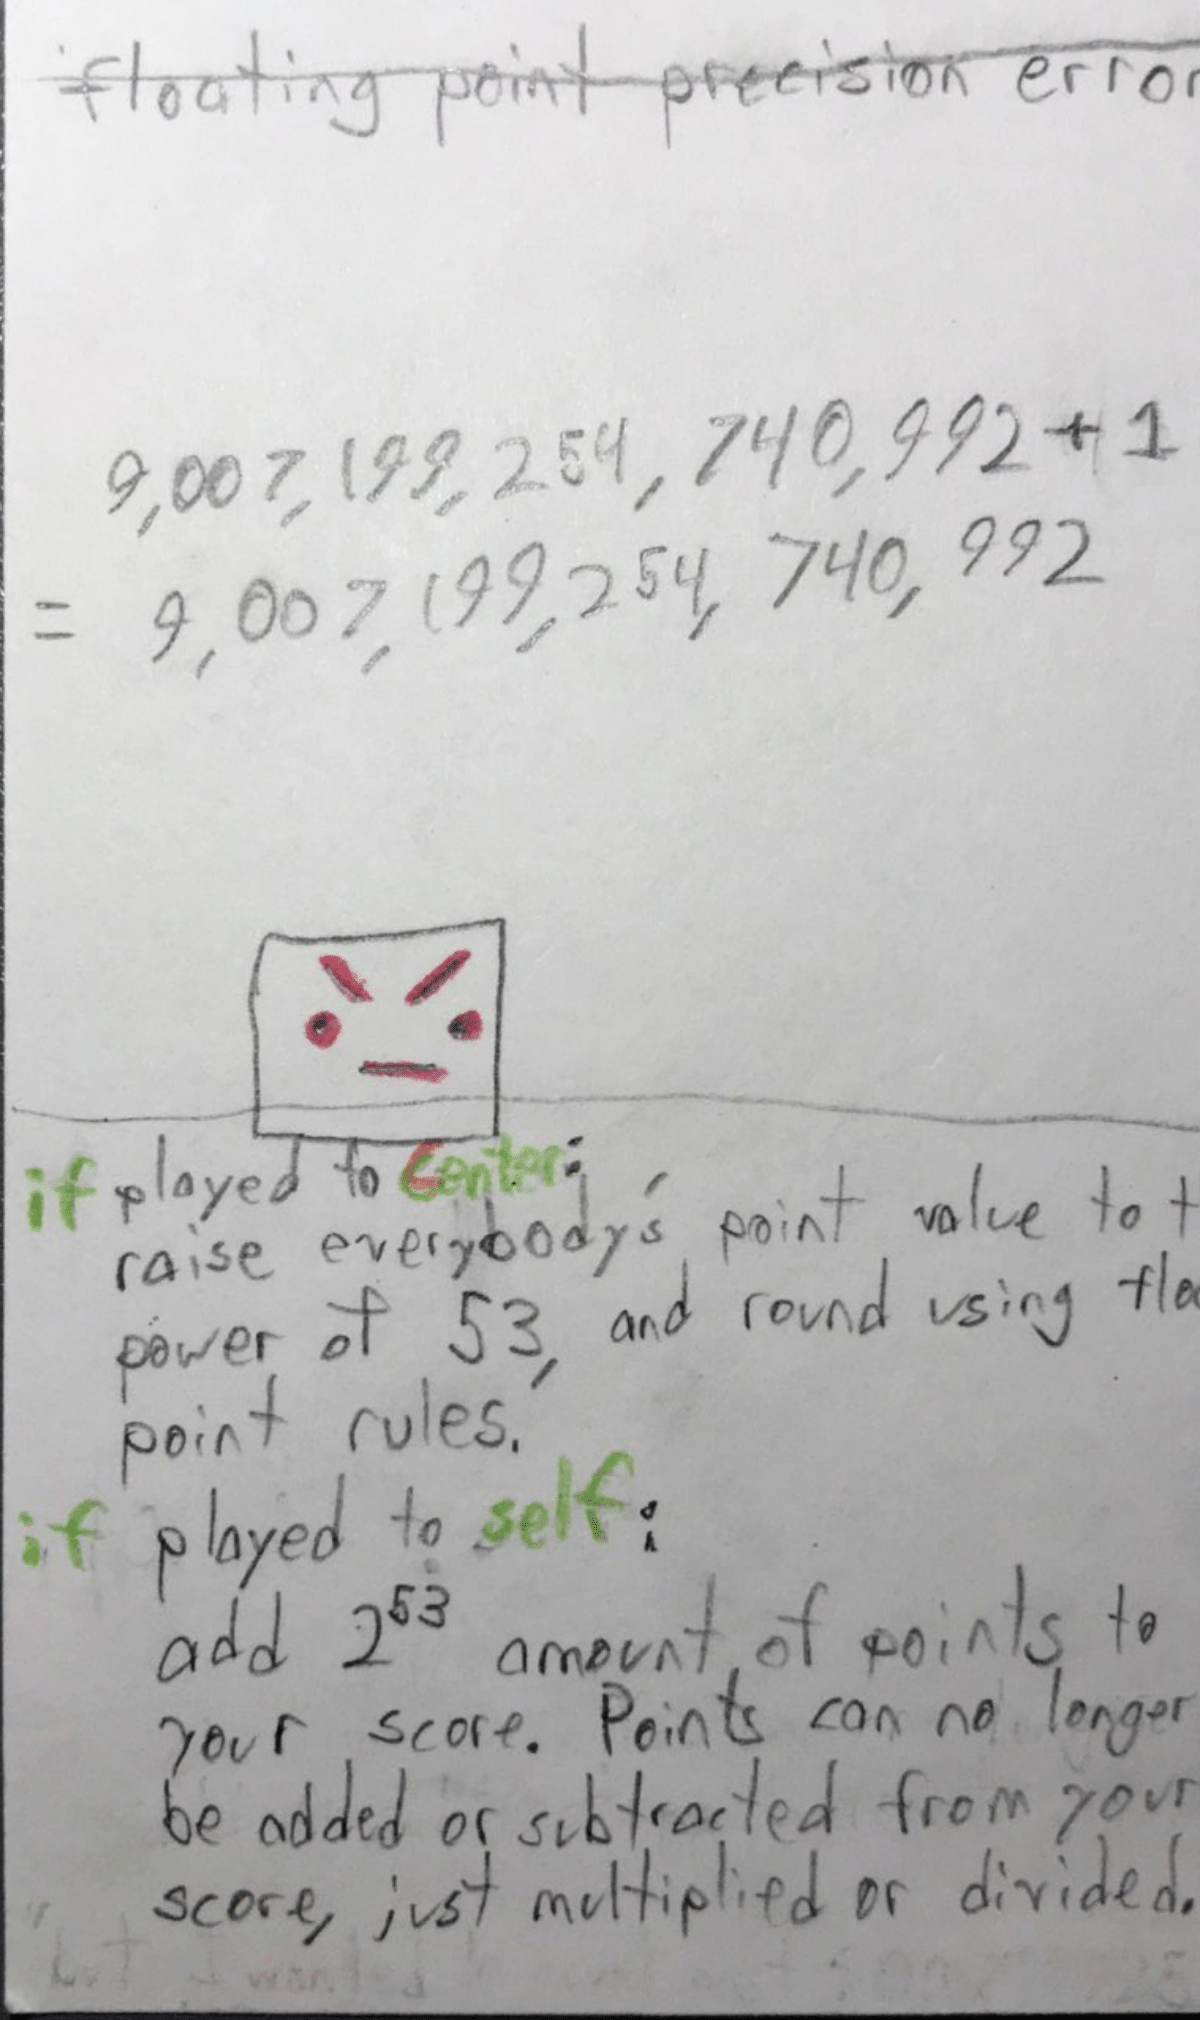 floating point precision error
9,007,199,254,740,992+1
= 9,007,199,254,740,992
if played to Center:
raise everybody's point value to t
power of 53, and round using floa
point rules.
if played to self:
add 2⁵³ amount of points to
your score. Points can no longer
be added or subtracted from your
score, just multiplied or divided.